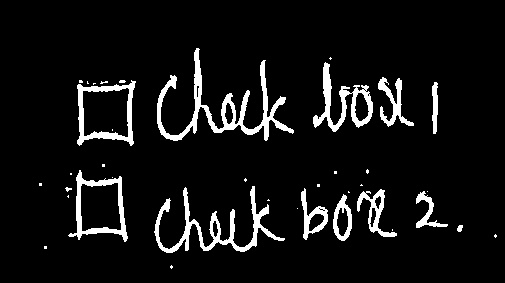 ☐ check box 1
☐ check box 2.